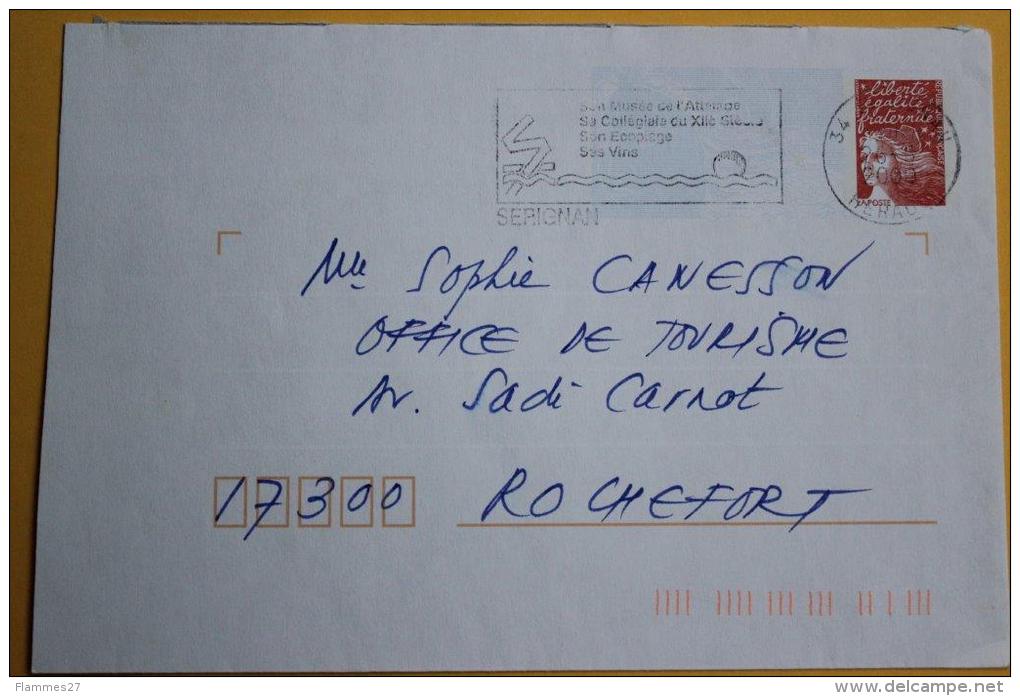 Son Musée de l'Attelage
Sa Collégiale du XIIè Siècle
Son Ecoplage
Ses Vins
SERIGNAN
liberté
égalité
fraternité
LAPOSTE
34
HERAULT
Mlle Sophie CANESSON
OFFICE DE TOURISME
Av. Sadi Carnot
17300 ROCHEFORT
Flammes27
www.delcampe.net